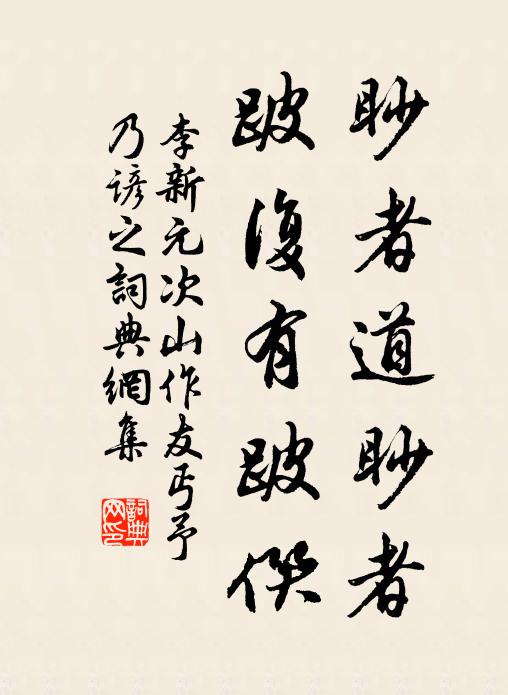 眇者道眇者
跛復有跛傑
李新元次山作友丐予
乃諺之詞典網集
詞典網印